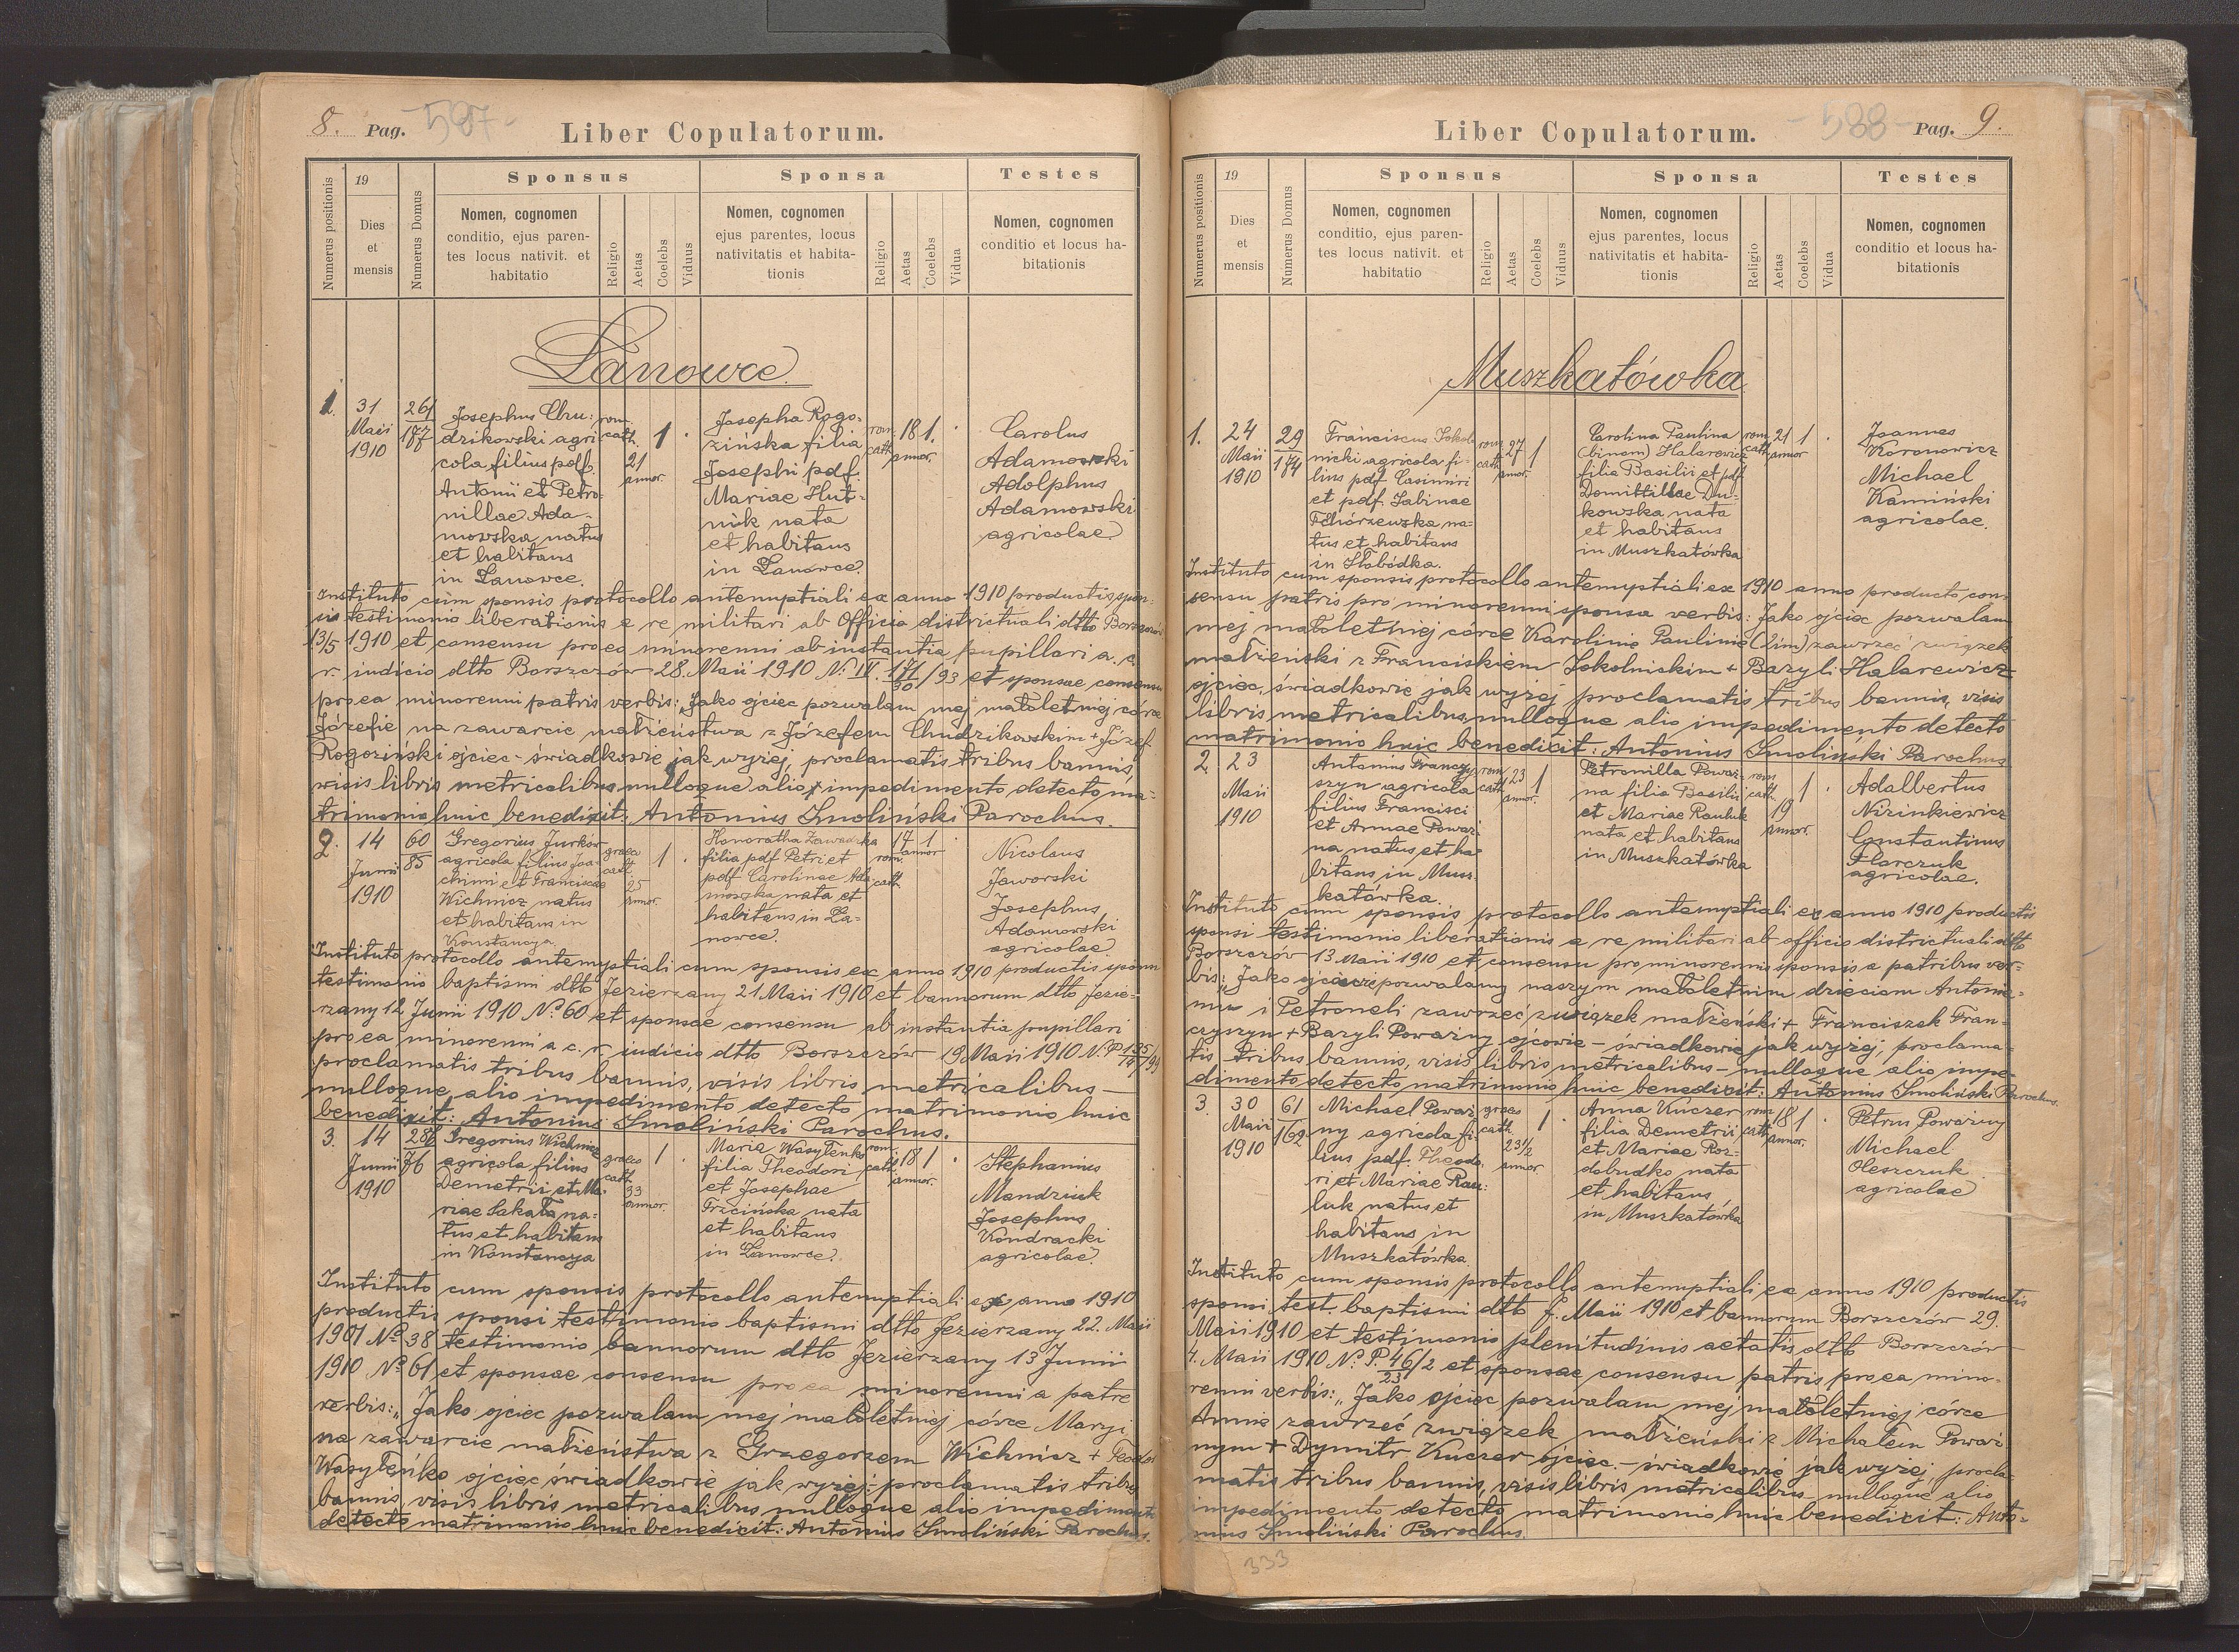 8. Pag. -587-
Liber Copulatorum.
Numerus positionis
19
Dies
et
mensis
Numerus Domus
Sponsus
Nomen, cognomen
conditio, ejus paren-
tes locus nativit. et
habitatio
Religio
Aetas
Coelebs
Viduus
Sponsa
Nomen, cognomen
ejus parentes, locus
nativitatis et habita-
tionis
Religio
Aetas
Coelebs
Vidua
Testes
Nomen, cognomen
conditio et locus ha-
bitationis
Łanowce
1.
31
Maii
1910
261
177
Josephus Chu-
drikowski agri-
cola filius pdf.
Antonii et Petro-
nillae Ada-
mowska natus
et habitans
in Łanowce.
rom.
cath.
21
annor.
1 .
Josepha Rogo-
zińska filia
Josephi pdf.
Mariae Hut-
nik nata
et habitans
in Łanowce.
rom.
cath.
18
annor.
1. .
Carolus
Adamowski
Adolphus
Adamowski
agricolae
Instituto cum sponsis protocollo antenuptiali ex anno 1910 productis spon-
sis testimonio liberationis a re militari ab Officio districtuali dtto Borszczów
13/5 1910 et consensu pro eo minorenni ab instantia pupillari a. c.
r. indicio dtto Borszczów 28. Maii 1910 N. IV. 171/30/93 et sponsae consensu
pro ea minorenni patris verbis: „Jako ojciec pozwalam mej małoletniej córce
Józefie na zawarcie małżeństwa z Józefem Chudzikowskim + Józef
Rogoziński ojciec - świadkowie jak wyżej, proclamatis tribus bannis,
visis libris metricalibus nulloque alio impedimento detecto ma-
trimonio huic benedixit: Antonius Smoliński Parochus.
2.
14
Junii
1910
60
85
Gregorius Jurków
agricola filius Joa-
chimi et Franciscae
Wichnicz natus
et habitans in
Konstancya
graeco
cath.
25
annor.
1 .
Honoratha Zawadzka
filia pdf Petri et
pdf Carolinae Ada-
mowska nata et
habitans in Ła-
nowce.
rom.
cath.
17
annor
1 .
Nicolaus
Jaworski
Josephus
Adamowski
agricolae
Instituto protocollo antenuptiali cum sponsis ex anno 1910 productis sponsi
testimonio baptismi dtto Jezierzany 21 Maii 1910 et bannorum dtto Jezie-
rzany 12 Junii 1910 No. 60 et sponsae consensu ab instantia pupillari
pro ea minorenni a c. r. indicio dtto Borszczów 19 Maii 1910 N. P.
proclamatis tribus bannis, visis libris metricalibus —
nulloque alio impedimento detecto matrimonio huic
benedixit: Antonius Smoliński Parochus.
3.
14
Junii
1910
286
76
Gregorius Wichnicz
agricola filius
Demetrii et Ma-
riae Sakała na-
tus et habitans
in Konstancya
graeco
cath.
33
annor.
1 .
Maria Wasyleńko
filia Theodori
et Josephae
Trzcińska nata
et habitans
in Łanowce.
rom.
cath.
18
annor.
1 .
Stephanus
Mandziuk
Josephus
Kondracki
agricolae
Instituto cum sponsis protocollo antenuptiali ex anno 1910
productis sponsi testimonio baptismi dtto Jezierzany 22. Maii
1901 No 38 testimonio bannorum dtto Jezierzany 13 Junii
1910 No 61 et sponsae consensu pro ea minorenni a patre
verbis: „Jako ojciec pozwalam mej małoletniej córce Maryi
na zawarcie małżeństwa z Grzegorzem Wichnicz +
Wasyleńko ojciec świadkowie jak wyżej: proclamatis tribus
bannis, visis libris metricalibus nulloque alio impedimento
detecto matrimonio huic benedixit: Antonius Smoliński Parochus.
Liber Copulatorum.
-588- Pag. 9.
Numerus positionis
19
Dies
et
mensis
Numerus Domus
Sponsus
Nomen, cognomen
conditio, ejus paren-
tes locus nativit. et
habitatio
Religio
Aetas
Coelebs
Viduus
Sponsa
Nomen, cognomen
ejus parentes, locus
nativitatis et habita-
tionis
Religio
Aetas
Coelebs
Vidua
Testes
Nomen, cognomen
conditio et locus ha-
bitationis
Muszkatówka
1.
24
Maii
1910
29
174
Franciscus Sokol-
nicki agricola fi-
lius pdf Casimiri
et pdf. Sabinae
Tchórzewska na-
tus et habitans
in Słobódka.
rom.
cath.
27
annor.
1
Carolina Paulina
(binom) Halarewicz
filia Basilii et pdf
Domittillae Du-
kowska nata
et habitans
in Muszkatówka
rom.
cath.
21
annor
1 .
Joannes
Koronowicz
Michael
Kamiński
agricolae.
Instituto cum sponsis protocollo antenuptiali ex 1910 anno producto con-
sensu patris pro minorenni sponsa verbis: Jako ojciec pozwalam
mej małoletniej córce Karolinie Paulinie (2im) zawrzeć związek
małżeński z Franciszkiem Sokolnickim + Bazyli Halarewicz
ojciec, świadkowie jak wyżej proclamatis tribus bannis, visis
libris metricalibus, nulloque alio impedimento detecto
matrimonio huic benedixit: Antonius Smoliński Parochus
2.
23
Maii
1910
Antonius Franczy-
szyn agricola
filius Francisci
et Annae Poważ-
na natus et ha-
bitans in Musz-
katówka.
rom.
cath.
23
annor.
1
Petronilla Poważ-
na filia Basilii
et Mariae Rauluk
nata et habitans
in Muszkatówka
rom.
cath.
19
annor.
1 .
Adalbertus
Nizinkiewicz
Constantinus
Harczuk
agricolae.
Instituto cum sponsis protocollo antenuptiali ex anno 1910 productis
sponsi testimonio liberationis a re militari ab officio districtuali dtto
Borszczów 13 Maii 1910 et consensu pro minorennis sponsis a patribus ver-
bis: „Jako ojcowie pozwalamy naszym małoletnim dzieciom Antonie-
mu i Petroneli zawrzeć związek małżeński + Franciszek Fran-
czyszyn + Bazyli Poważny ojcowie - świadkowie jak wyżej, proclama-
tis tribus bannis, visis libris metricalibus - nulloque alio impe-
dimento detecto matrimonio huic benedixit: Antonius Smoliński Parochus.
3.
30
Maii
1910
61
169
Michael Poważ-
ny agricola fi-
lius pdf. Theodo-
ri et Mariae Rau-
luk natus et
habitans in
Muszkatówka
graeco
cath.
23 1/2
annor.
1 .
Anna Kuczer
filia Demetrii
et Mariae Roz-
dobudko nata
et habitans
in Muszkatówka
rom.
cath.
18
annor.
1 .
Petrus Poważny
Michael
Oleszczuk
agricolae
Instituto cum sponsis protocollo antenuptiali ex anno 1910 productis
sponsi test. baptismi dtto Maii 1910 et bannorum Borszczów 29.
Maii 1910 et testimonio plenitudinis aetatis dtto Borszczów
4. Maii 1910 No. P. 46/23/2 et sponsae consensu patris pro ea mino-
renni verbis: „Jako ojciec pozwalam mej małoletniej córce
Annie zawrzeć związek małżeński z Michałem Poważ-
nym + Dymitr Kuczer ojciec. - świadkowie jak wyżej, procla-
matis tribus bannis, visis libris metricalibus - nulloque alio
impedimento detecto matrimonio huic benedixit: Anto-
nius Smoliński Parochus.
333